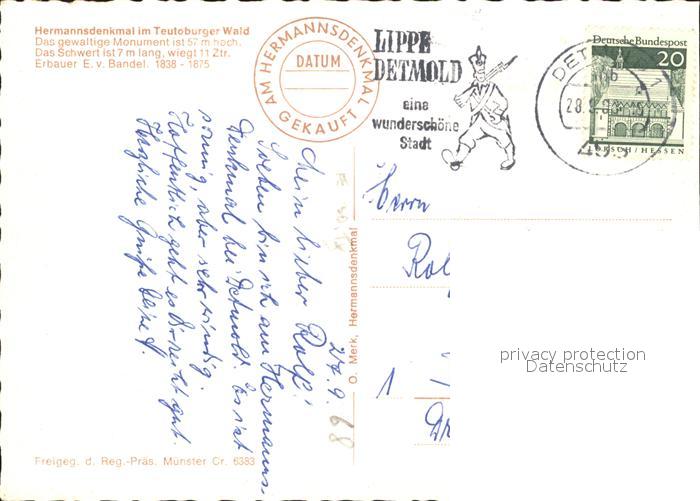 Hermannsdenkmal im Teutoburger Wald
Das gewaltige Monument ist 57 m hoch.
Das Schwert ist 7 m lang, wiegt 11 Ztr.
Erbauer E. v. Bandel. 1838 - 1875
AM HERMANNSDENKMAL GEKAUFT
DATUM
LIPPE
DETMOLD
eine
wunderschöne
Stadt
Deutsche Bundespost
20
LORSCH / HESSEN
DETMOLD
28.9.
493
27.9.
68
Mein lieber Rolf!
Soeben bin ich am Hermanns-
Denkmal bei Detmold. Es ist
sonnig, aber sehr windig.
Hoffentlich geht es Dir recht gut.
Herzliche Grüße Deine
O. Merk, Hermannsdenkmal
Herrn
Rol
1
privacy protection
Datenschutz
Freigeg. d. Reg.-Präs. Münster Cr. 6383